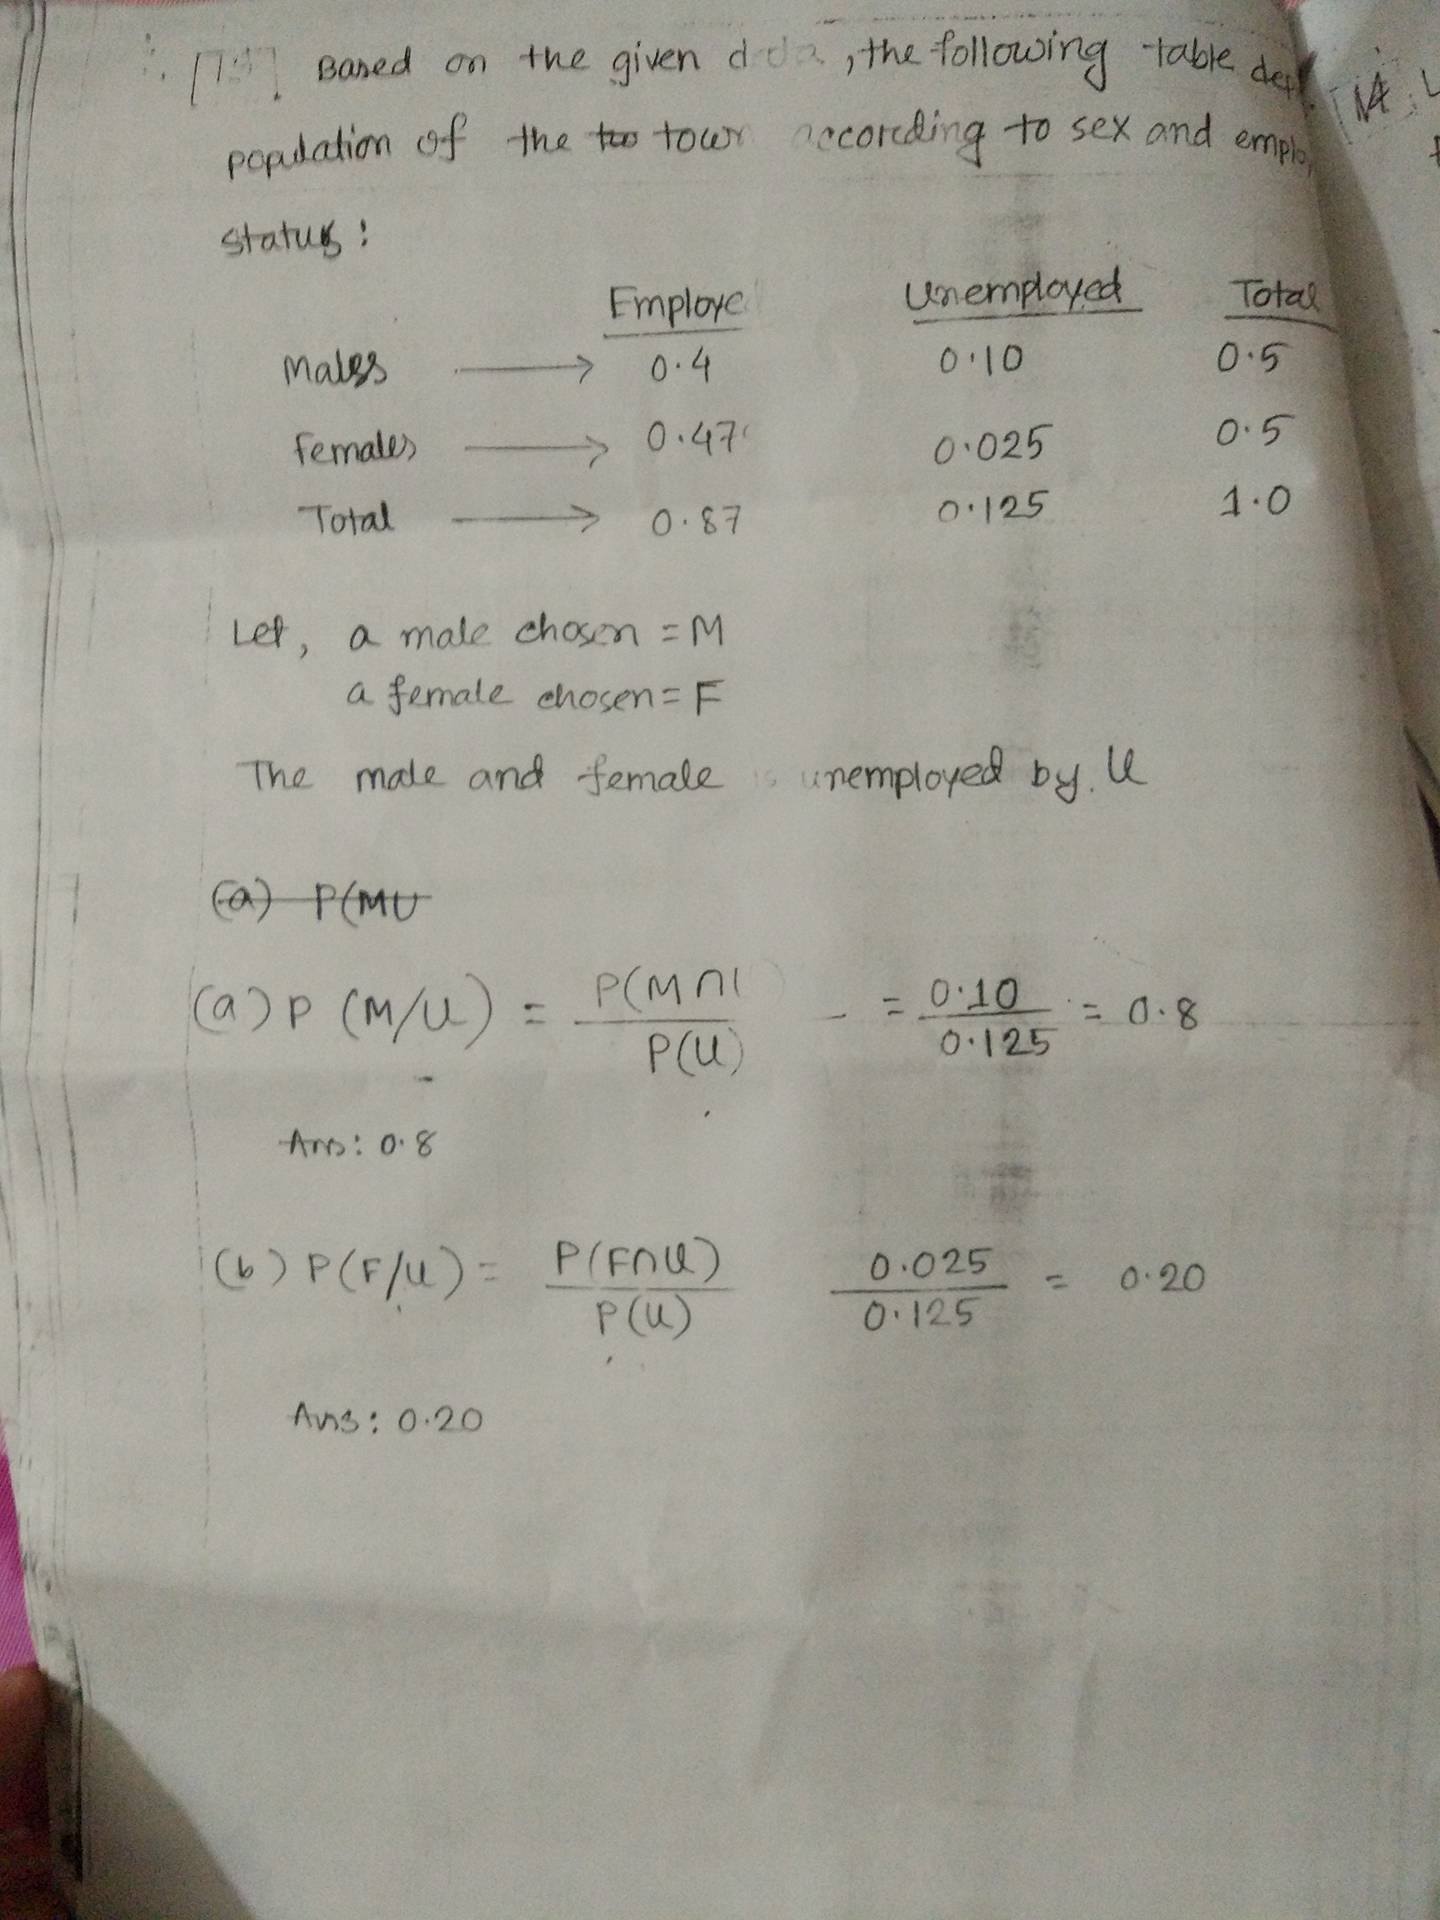 Based on the given data, the following table
population of the too town according to sex and
status:
Employe Unemployed Total
Males → 0.4 0.10 0.5
Females → 0.47 0.025 0.5
Total → 0.87 0.125 1.0
Let, a male chosen = M
a female chosen = F
The male and female is unemployed by. U
(a) P(MU
(a) P (M/U) = P(M∩ / P(U) = 0.10 / 0.125 = 0.8
Ans: 0.8
(b) P(F/U) = P(F∩U) / P(U) 0.025 / 0.125 = 0.20
Ans: 0.20